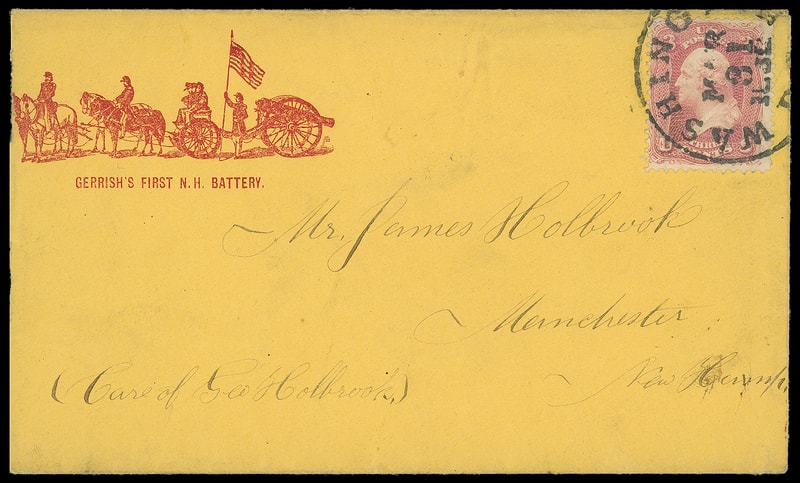 WASHINGTON
MAR
31
1862
GERRISH'S FIRST N. H. BATTERY.
Mr. James Holbrook
Manchester
New Hamp.
(Care of Geo Holbrook,)